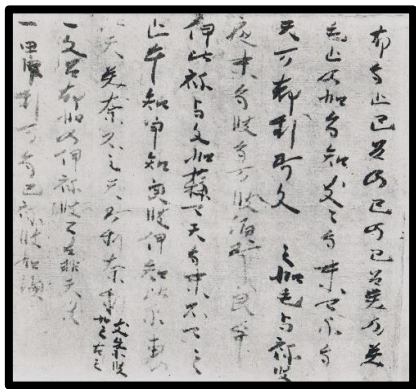 布多止己呂乃己乃己呂美乃美
毛止乃加多知支々多末マ尓多
天万都利阿久 之加毛与祢波
夜末多波多万波須阿良牟
伊比祢与久加蘇マ天多末不マ之
止乎知宇知良波伊知比尓恵
比天美奈不之天阿利奈利
一久呂都加乃伊祢波々古非天伎
一田宇利万多己祢波加須